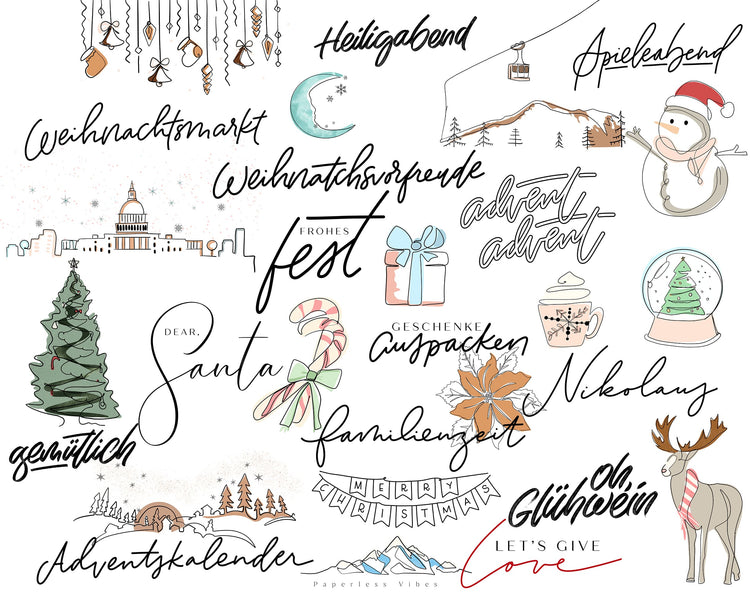 Heiligabend
Spieleabend
Weihnachtsmarkt
Weihnatchsvorfreude
advent
advent
FROHES
fest
DEAR,
Santa
GESCHENKE
auspacken
Nikolaus
familienzeit
gemütlich
MERRY
CHRISTMAS
oh,
Glühwein
LET'S GIVE
Love
Adventskalender
Paperless Vibes